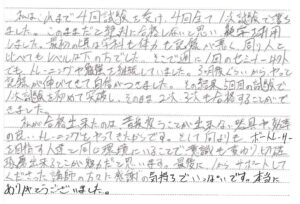 私はこれまで4回試験を受け、4回全て1次試験で落ち
ました。このままだと絶対に合格しないと思い
しました。最初の頃は学科も体力も記録が悪く、周りの人と
比べてもレベルは下の方でした。そこで週に1回のセミナー以外
でも、トレーニングや勉強を継続していました。3ヶ月後くらいから、やっと
記録が伸びてきて自信がつきました。その結果5回目の試験で
1次試験を初めて突破し、そのまま2次、3次も合格することがで
きました。
私が合格出来たのは、
の良いトレーニングをやってきたからです。そして何よりも、ボートレーサー
を目指す人達と同じ環境にいることで意識も変わり
出来ることが魅力だと思います。最後に1からサポートして
くださった講師の方々に感謝の気持ちでいっぱいです。本当に
ありがとうございました。